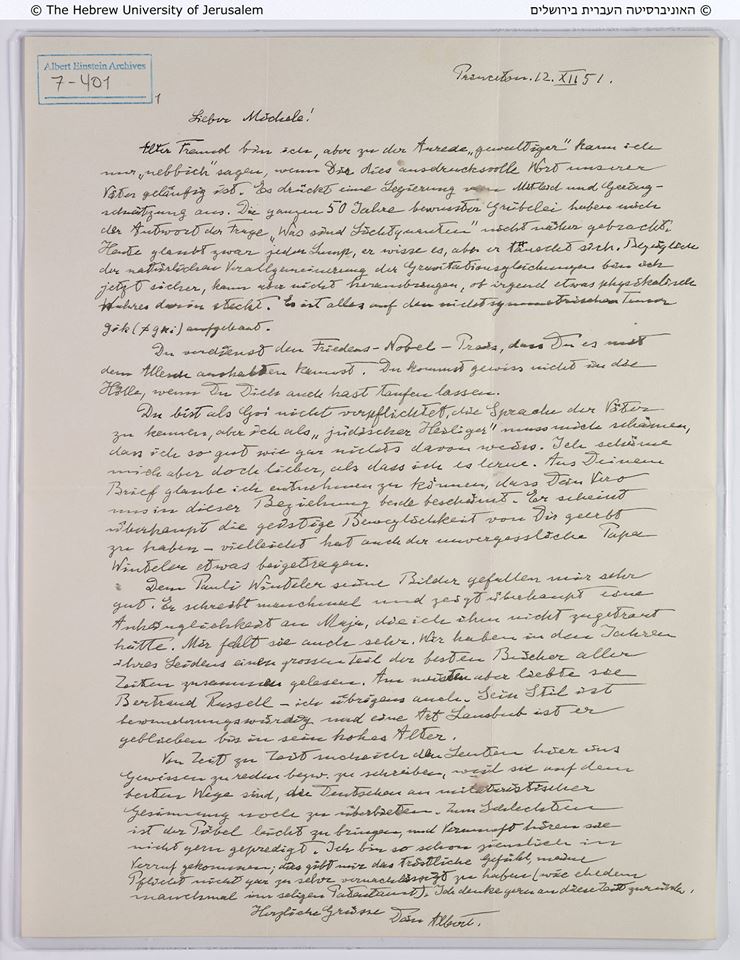 © The Hebrew University of Jerusalem
© האוניברסיטה העברית בירושלים
Albert Einstein Archives
7-401
1
Princeton. 12. XII 51.
Lieber Michele!
Alter Freund bin ich, aber zu der Anrede „gewaltiger" kann ich
nur „nebbich" sagen, wenn Dir dies ausdrucksvolle Wort unserer
Väter geläufig ist. Es drückt eine Legierung von Mitleid und Gering-
schätzung aus. Die ganzen 50 Jahre bewusster Grübelei haben mich
der Antwort der Frage „Was sind Lichtquanten" nicht näher gebracht.
Heute glaubt zwar jeder Lump, er wisse es, aber er täuscht sich. Bezüglich
der natürlichen Verallgemeinerung der Gravitationsgleichungen bin ich
jetzt sicher, kann aber nicht herausbringen, ob irgend etwas physikalisch
Wahres darin steckt. Es ist alles auf den nichtsymmetrischen Tensor
gik (≠ gki) aufgebaut.
Du verdienst den Friedens-Nobel-Preis, dass Du es mit
dem aushalten kannst. Du kommst gewiss nicht in die
Hölle, wenn Du Dich auch hast taufen lassen.
Du bist als Goi nicht verpflichtet, die Sprache der Väter
zu kennen, aber ich als „jüdischer Heiliger" muss mich schämen,
dass ich so gut wie gar nichts davon weiss. Ich schäme
mich aber doch lieber, als dass ich es lerne. Aus Deinem
Brief glaube ich entnehmen zu können, dass Dein Vero
uns in dieser Beziehung beide beschämt. Er scheint
überhaupt die geistige Beweglichkeit von Dir geerbt
zu haben – vielleicht hat auch der unvergessliche Papa
Winteler etwas beigetragen.
Dem Pauli Winteler seine Bilder gefallen mir sehr
gut. Er schreibt manchmal und zeigt überhaupt eine
Anhänglichkeit an Maja, die ich ihm nicht zugetraut
hätte. Mir fehlt sie auch sehr. Wir haben in den Jahren
ihres Leidens einen grossen Teil der besten Bücher aller
Zeiten zusammen gelesen. Am meisten aber liebte sie
Bertrand Russell – ich übrigens auch. Sein Stil ist
bewunderungswürdig und eine Art Lausbub ist er
geblieben bis in sein hohes Alter.
Von Zeit zu Zeit suche ich den Leuten hier ins
Gewissen zu reden bezw. zu schreiben, weil sie auf dem
besten Wege sind, die Deutschen an militaristischer
Gesinnung noch zu überbieten. Zum Schlechten
ist der Pöbel leicht zu bringen, und Vernunft hören sie
nicht gern gepredigt. Ich bin so schon ziemlich in
Verruf gekommen; dies gibt mir das tröstliche Gefühl, meine
Pflicht nicht gar zu sehr vernachlässigt zu haben (wie ehedem
manchmal im seligen Patentamt). Ich denke gern an diese Zeit zurück.
Herzliche Grüsse Dein Albert.